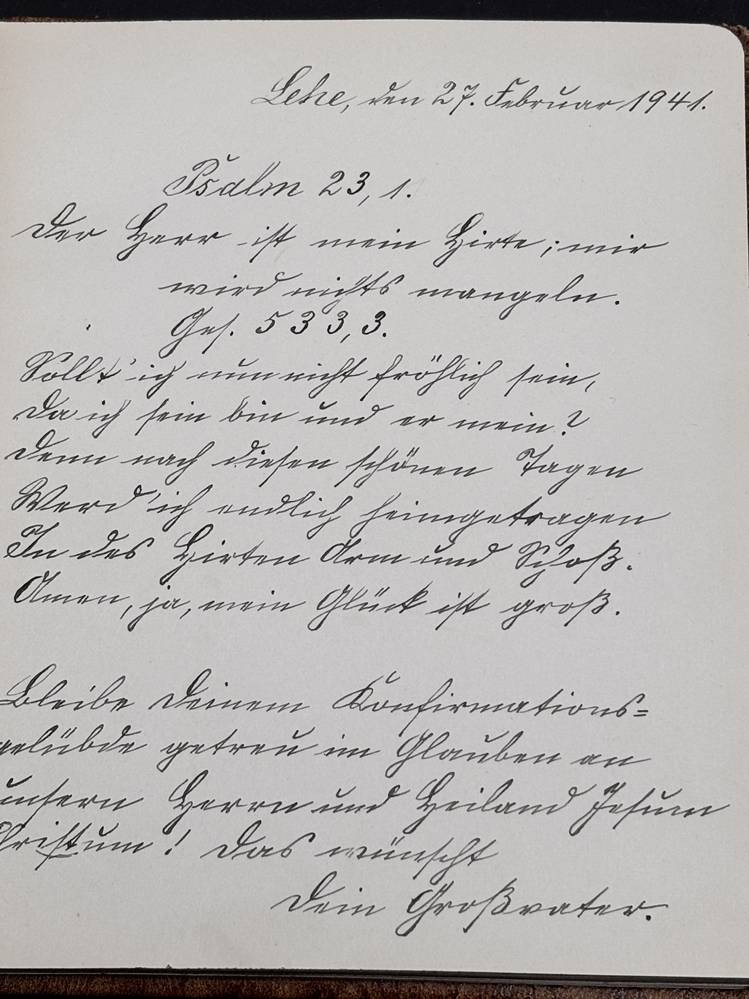 Lehe, den 27. Februar 1941.
Psalm 23, 1.
Der Herr ist mein Hirte; mir
wird nichts mangeln.
Ges. 533, 3.
Sollt' ich nun nicht fröhlich sein,
Da ich sein bin und er mein?
Denn nach diesen schönen Tagen
Werd' ich endlich heimgetragen
In des Hirten Arm und Schoß.
Amen, ja, mein Glück ist groß.
Bleibe Deinem Konfirmations=
gelübde getreu im Glauben an
unsern Herrn und Heiland Jesum
Christum! Das wünscht
Dein Großvater.